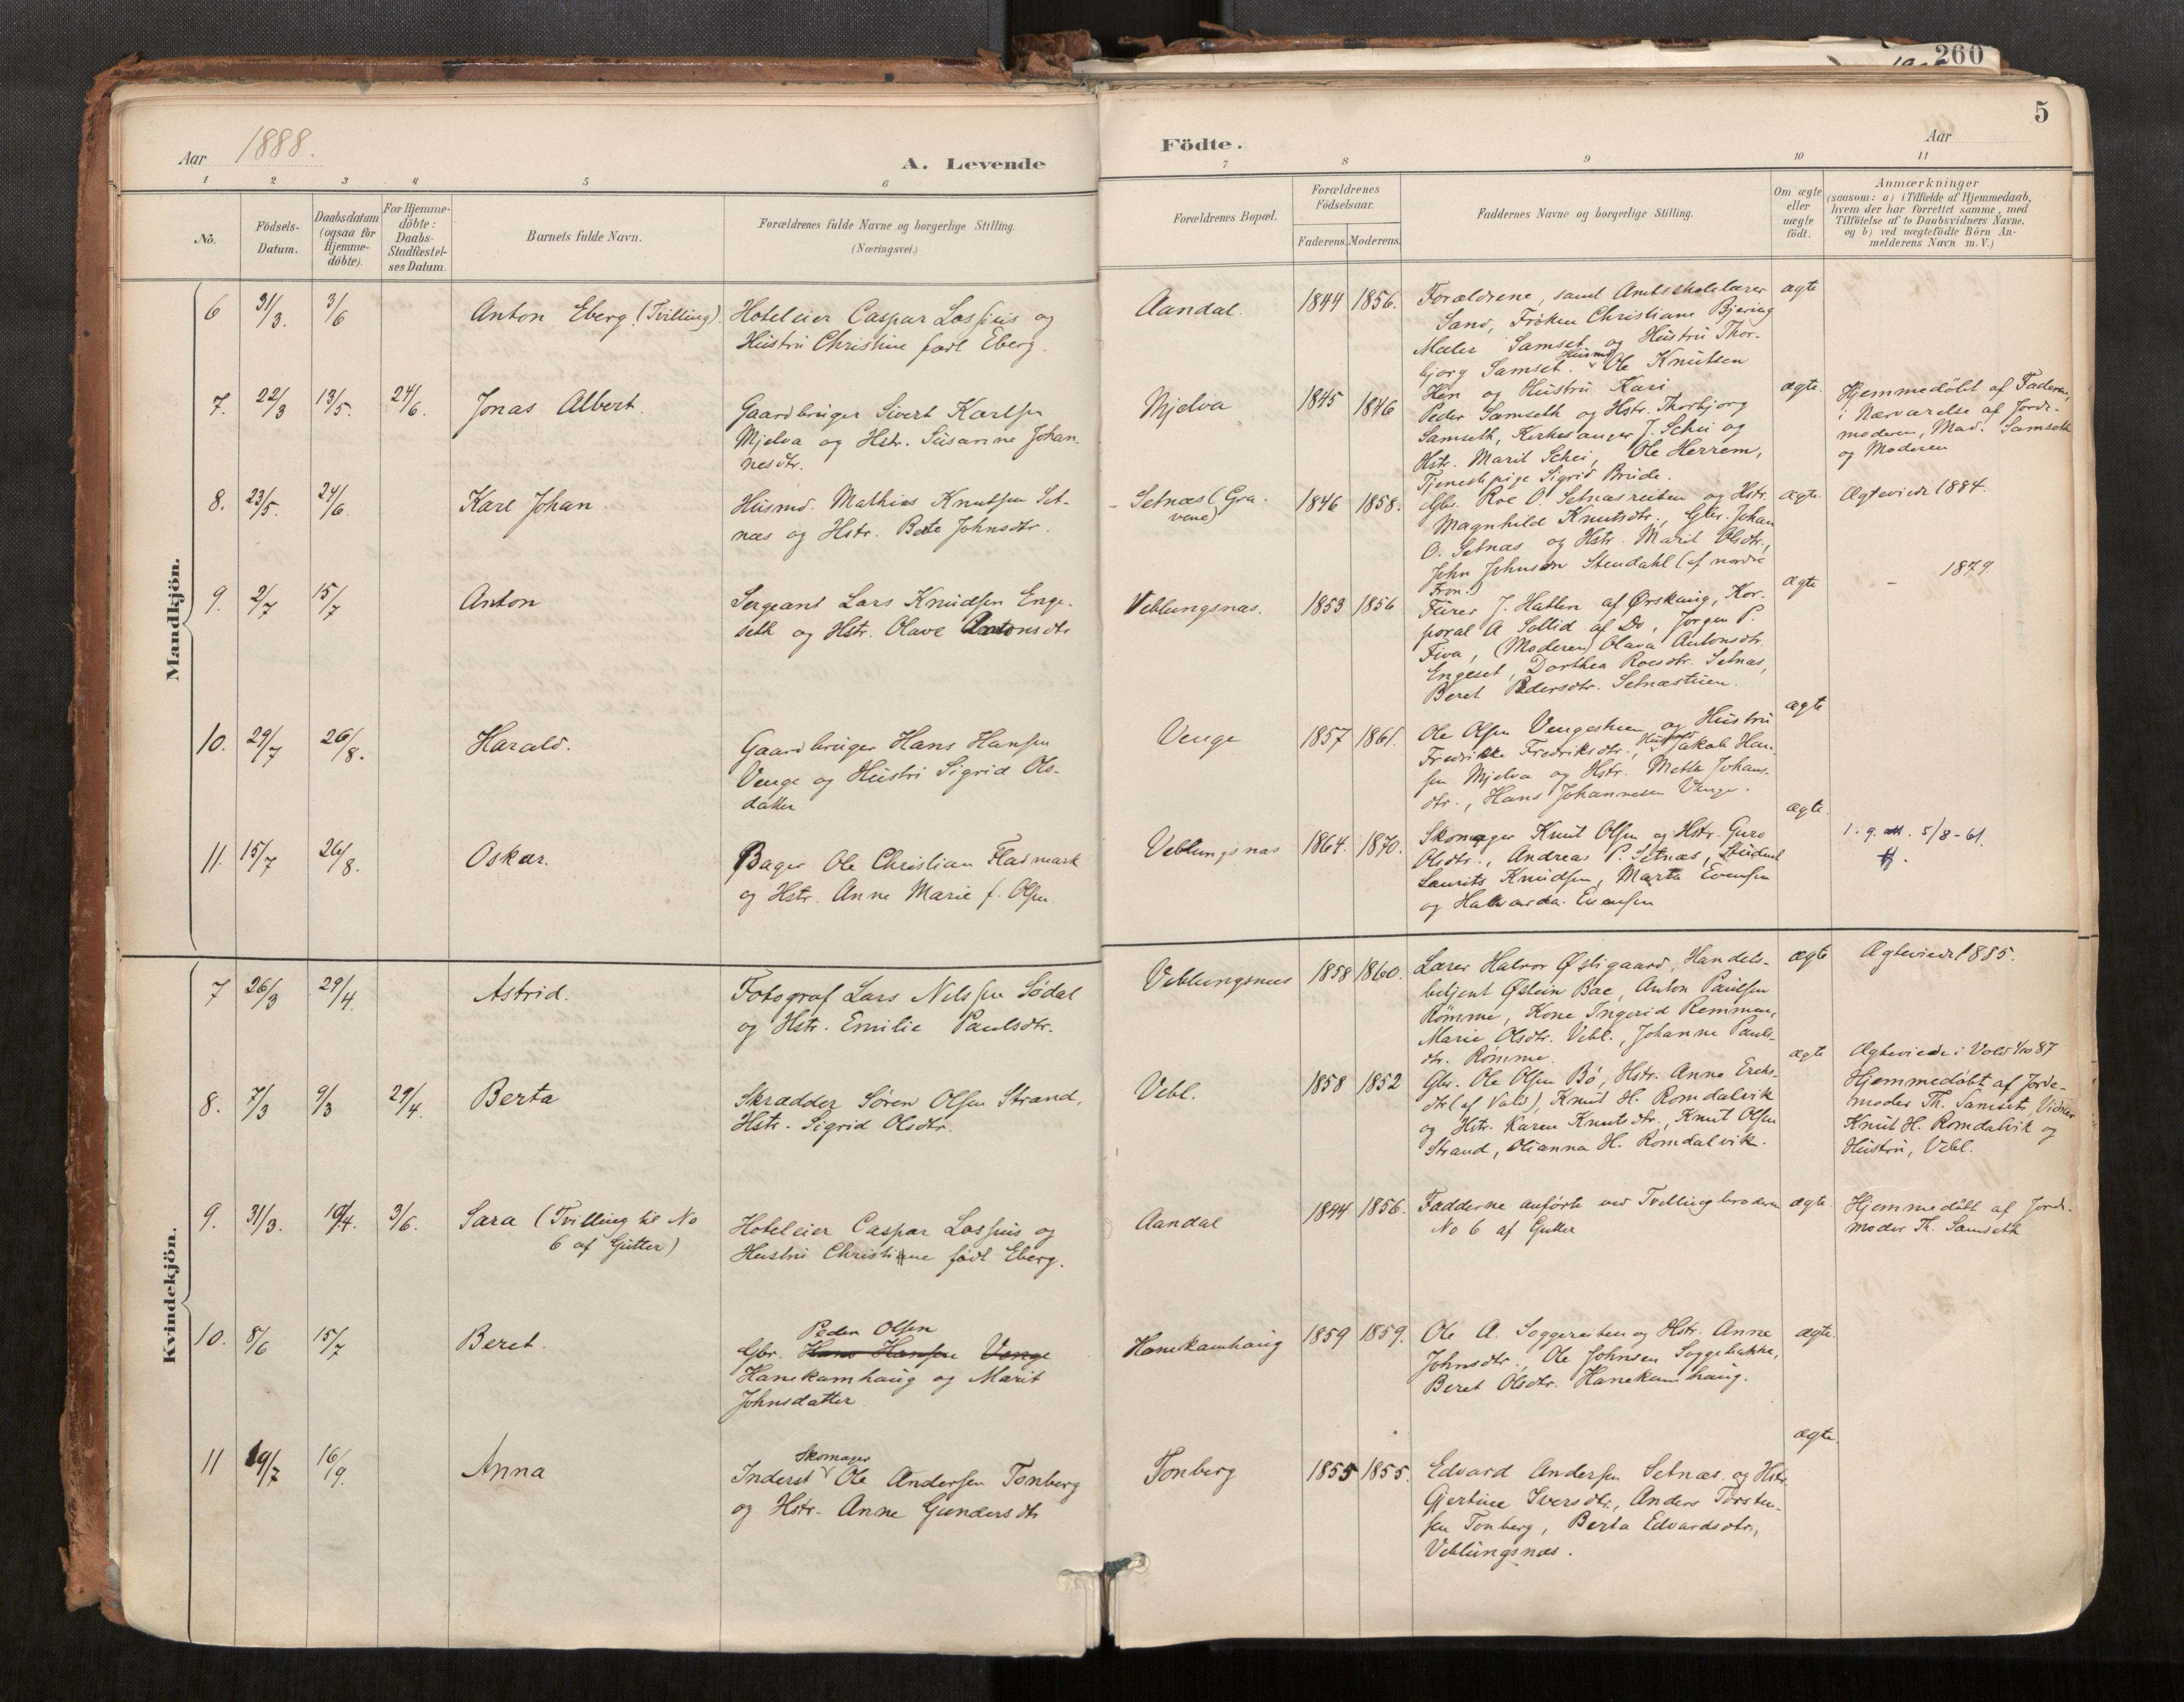 260
5
Aar 1888.
A. Levende
Födte.
Aar
1 2 3 4 5 6 7 8 9 10 11
No.
Födsels-
Datum.
Daabsdatum
(ogsaa for
Hjemme-
döbte).
For Hjemme-
döbte:
Daabs-
Stadfæstel-
ses Datum.
Barnets fulde Navn.
Forældrenes fulde Navne og borgerlige Stilling.
(Næringsvei.)
Forældrenes Bopæl.
Forældrenes
Födselsaar.
Faderens. Moderens.
Faddernes Navne og borgerlige Stilling.
Om ægte
eller
uægte
födt.
Anmærkninger
(saasom: a) i Tilfælde af Hjemmedaab,
hvem der har forrettet samme, med
Tilföielse af to Daabsvidners Navne,
og b) ved uægtefödte Börn An-
melderens Navn m. V.)
Mandkjön.
6 31/3. 3/6 Anton Eberg (Tvilling).
Hoteleier Caspar Lossius og
Hustru Christine født Eberg.
Aandal. 1844 1856.
Forældrene, samt Amtsskolelærer
Sand, Frøken Christiane Bjering
Maler Samset og Hustru Thor-
bjørg Samset. Husmd Ole Knutsen
Hen og Hustru Kari
ægte
7. 22/3 13/5. 24/6. Jonas Albert.
Gaardbruger Sivert Karlsen
Mjelva og Hstr. Susanne Johan-
nesdtr.
Mjelva 1845 1846
Peder Samseth og Hstr. Thorbjørg
Samseth, Kirkesanger J. Schei og
Hstr. Marit Schei, Ole Herrem,
Tjenestepige Sigrid Brude.
ægte.
Hjemmedöbt af Faderen,
i Nærværelse af Jorde-
moderen, Mad. Samseth
og Moderen
8. 23/5. 24/6. Karl Johan.
Husmd. Mathias Knutsen Set-
næs og Hstr. Beate Johnsdtr.
Setnæs (Gra-
vene) 1846 1858.
Gbr. Roe O. Setnæsreiten og Hstr.
Magnhild Knutsdtr., Gbr. Johan
O. Setnæs og Hstr. Marit Olsdtr.,
John Johnsen Stendahl (af nordre
Fron.)
ægte.
Ægteviede 1884.
9. 2/7 15/7 Anton
Sergeant Lars Knudsen Enge-
seth og Hstr. Olave Antonsdtr
Veblungsnæs. 1853 1856
Furer J. Hatlen af Ørskaug, Kor-
poral A Sollid af Do, Jørgen P.
Fiva, (Moderen) Olava Antonsdtr.
Engeset, Dorthea Roesdtr. Setnæs,
Beret Pedersdtr. Setnæstuen.
ægte
- 1879
10. 29/7 26/8. Harald.
Gaardbruger Hans Hansen
Venge og Hustru Sigrid Ols-
datter
Venge 1857 1861.
Ole Olsen Vengesteen og Hustru
Fredrikke Fredriksdtr., Husmd Jakob Han-
sen Mjelva og Hstr. Mette Johans-
dtr., Hans Johannesen Venge.
ægte
11. 15/7 26/8. Oskar.
Bager Ole Christian Fladmark
og Hstr. Anne Marie f. Olsen.
Veblungsnæs 1864. 1870.
Skomager Knut Olsen og Hstr. Guro
Olsdtr., Andreas P. Setnæs, Student
Laurits Knudsen, Marta Evensen
og Halvarda Evensen
ægte.
1. g. att. 5/8-61.
Kvindekjön.
7 26/3 29/4. Astrid.
Fotograf Lars Nilssen Sødal
og Hstr. Emilie Paulsdtr.
Veblungsnæs 1858 1860.
Lærer Halvor Østigaard, Handels-
betjent Østein Bae, Anton Paulsen
Rømme, Kone Ingerid Remmen,
Marie Olsdtr. Vebl., Johanne Pauls-
dtr. Rømme.
ægte
Ægteviede 1885.
8. 7/3 9/3 29/4. Berta
Skrædder Søren Olsen Strand,
Hstr. Sigrid Olsdtr.
Vebl. 1858 1852
Gbr. Ole Olsen Bö, Hstr. Anne Ereks-
dtr (af Vold), Knud H. Romdalsvik
og Hstr. Karen Knutsdtr., Knut Olsen
Strand, Olianna H. Romdalsvik.
ægte
Ægteviede i Vold 1/10 87
Hjemmedöbt af Jorde-
moder Th. Samset, Vidner
Knut H. Romdalsvik og
Hustru, Vebl.
9. 31/3. 10/4. 3/6. Sara (Tvilling til No
6 af Gutter)
Hoteleier Caspar Lossius og
Hustru Christine født Eberg.
Aandal 1844 1856.
Fadderne anførte ved Tvillingbroderen
No 6 af Gutter
ægte.
Hjemmedöbt af Jorde-
moder Th. Samseth
10. 8/6 15/7 Beret.
Peder Olsen
Gbr. Hans Hansen Venge
Hanekamhaug og Marit
Johnsdatter
Hanekamhaug 1859 1859.
Ole A. Soggereiten og Hstr. Anne
Johnsdtr., Ole Johnsen Soggebakke,
Beret Olsdtr. Hanekamhaug.
ægte.
11 19/7 16/9. Anna
Skomager
Inderst Ole Andersen Tonberg
og Hstr. Anne Gundersdtr
Tonberg 1855 1855.
Edvard Andersen Setnæs og Hstr.
Gjertine Iversdtr., Anders Torsten-
sen Tonberg, Berta Edvardsdtr.,
Veblungsnæs.
ægte.